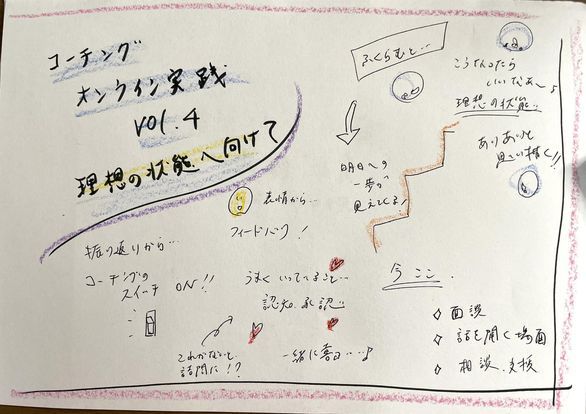 コーチング
オンライン実践
vol.4
理想の状態へ向けて
ふくらむと…
こうなったら
いいなあ〜♪
理想の状態
ありありと
思い描く!!
明日への
一歩が
見えてくる!
表情から…
フィードバック!
振り返りから…
コーチングの
スイッチ ON!!
うまくいっていること…
認知・承認
これがないと
詰問に!?
一緒に喜ぶ…♪
今ここ.
◇ 面談
◇ 話を聞く場面
◇ 相談・支援